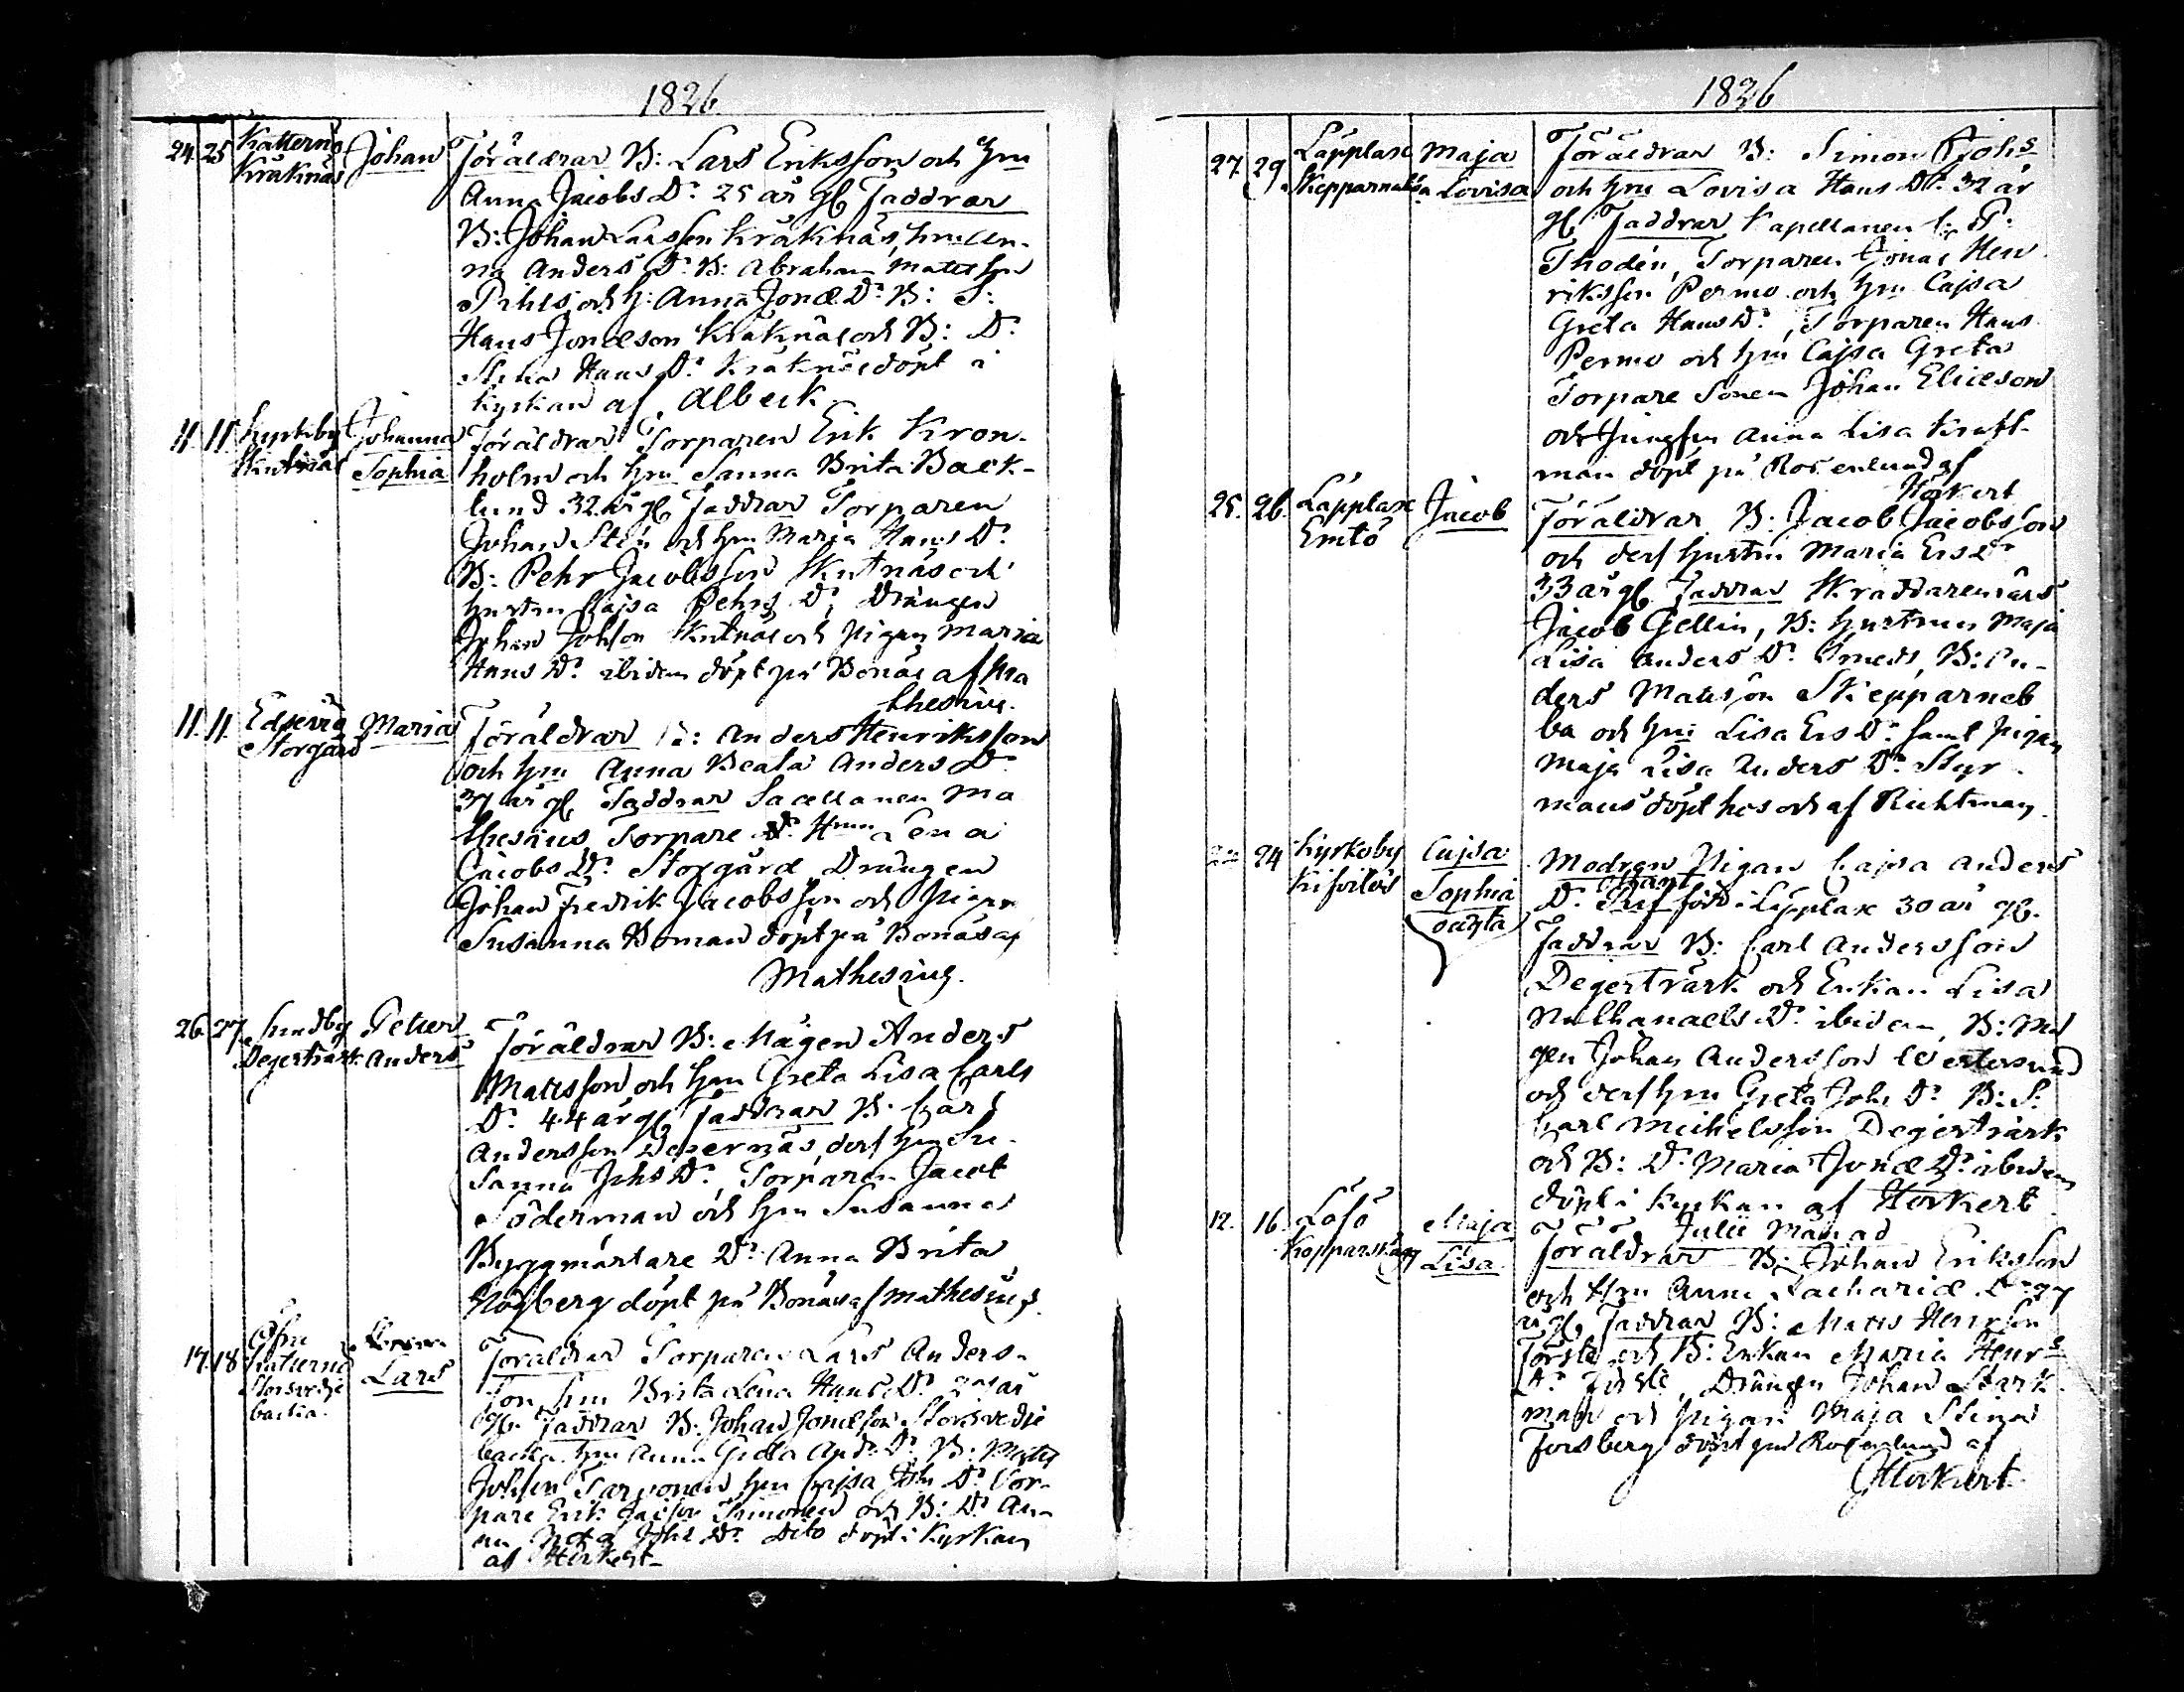 1826
24. 25 Katternö Kråknäs Johan Föräldrar B: Lars Eriksson och hru
Anna Jacobs Dr. 25 år gl Faddrar
B: Johan Larsson Kråknäs,
na Anders Dr. B: Abraham Mattsson
Pihls och h: Anna Jonæ Dr. B: S:
Hans Jonæson Kråknäs och B: Dr.
Stina Hans Dr. Kråknäs döpt i
Kyrkan af Albeck
11 11 Kyrkoby Skutnäs Johanna Sophia Föräldrar Torparen Erik Kron-
holm och hru Sanna Brita Back-
lund 32 år gl Faddrar Torparen
Johan Sten och hru Maria Hans Dr.
B: Pehr Jacobsson Skutnäs och
hustrun Cajsa Pehrs Dr, Drängen
Johan Johsson Skutnäs och pigan Maria
Hans Dr. ibidem döpt på Bonäs af Ma
thesius.
11. 11. Edsevig Storgård Maria Föräldrar B: Anders Henriksson
och hru Anna Beata Anders Dr
37 år gl Faddrar Sacellanen Ma
thesius Torpare Dr. Hrun Lena
Jacobs Dr. Storgård Drängen
Johan Fredrik Jacobsson och Pigan
Susanna Boman döpt på Bonäs af
Mathesius.
26. 27. Sundby Degerträsk Petter Anders Föräldrar B: Mågen Anders
Mattsson och hru Greta Lisa Carls
Dr. 44 år gl Faddrar B. Carl
Andersson Degernäs, dess hru Su-
sanna Johs Dr, Torparen Jacob
Söderman och hru Susanna
Byggmästare Dr. Anna Brita
Högberg döpt på Bonäs af Mathesius.
17 18 Öfre Katternö Storsvedjebacka. Lars Föräldrar Torparen Lars Anders-
son hru Brita Lena Hans Dr. år
gl. Faddrar B. Johan Jonæson Storsvedje
backa hru Anna Greta And: Dr. B: Matts
Johsson Tarvonen hru Cajsa Joh Dr. Tor-
pare Erik Jacson Simonen och B: Dr. An-
na Johs Dr. dito döpt i Kyrkan
af Hörkert
1826
27 29 Lapplax Skepparnabba Maja Lovisa Föräldrar B: Simon Johs
och hru Lovisa Hans Dr. 32 år
gl Faddrar Kapellanen C: P:
Thodén, Torparen Jonas Hen
riksson Permo och hru Cajsa
Greta Hans Dr., Torparen Hans
Permo och hru Cajsa Greta
Torpare Sonen Johan Eliæson
och Jungfru Anna Lisa Kraft-
man döpt på Rosenlund af
Hörkert
25. 26. Lapplax Emtö Jacob Föräldrar B. Jacob Jacobsson
och dess hustru Maria Ers Dr
33 år gl. Faddrar Skräddaremäs
Jacob Gellin, B: hustrun Maja
Lisa Anders Dr. Smeds, B: An-
ders Mattsson Skepparnab
ba och hru Lisa Ers Dr. samt pigan
Maja Lisa Anders Dr. Styr-
mans döpt hos och af Richtman
24 Kyrkoby Kifvilös Cajsa Sophia oächta Modren Pigan Cajsa Anders
Dr. född i Lapplax 30 år gl.
Faddrar B: Carl Andersson
Degerträsk och Enkan Lisa
Nathanaels Dr. ibidem, B: Må
gen Johan Andersson Westersund
och dess hru Greta Johs Dr. B: S:
Carl Michelsson Degerträsk
och B: Dr. Maria Jonæ Dr. ibidem
döpt i Kyrkan af Hörkert
Julii Månad
12. 16. Löfö Kopparskär Maja Lisa Föräldrar B: Johan Eriksson
och Hru Anna Zachariæ Dr 27
år gl. Faddrar B: Matts Henrsson
Förste och B: Enkan Maria Henrs
Dr. Förste, Drängen Johan Stark-
man och pigan Maja Stina
Forsberg döpt på Rosenlund af
Hörkert